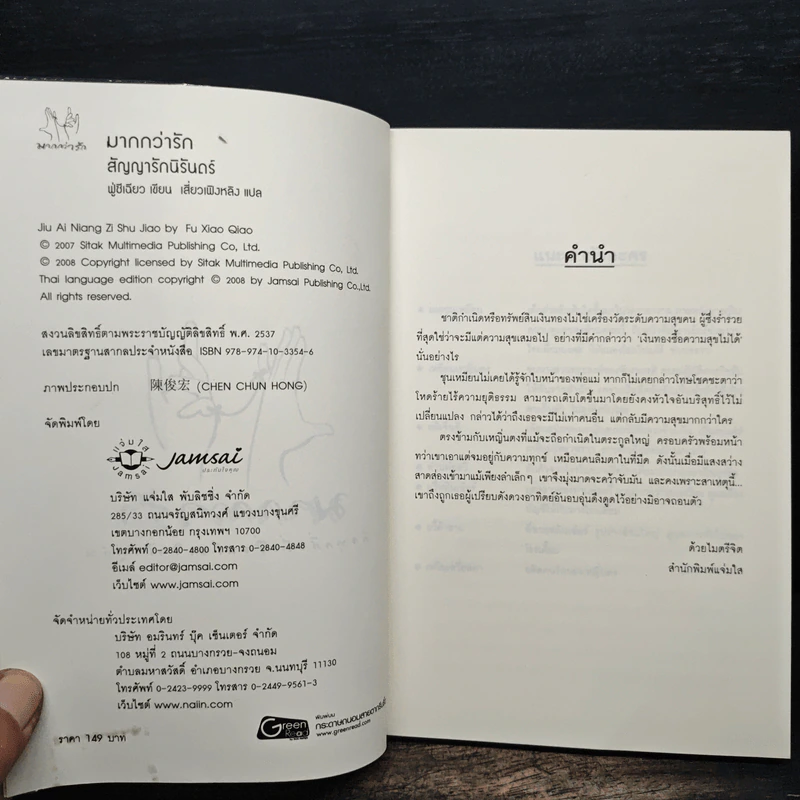 มากกว่ารัก
มากกว่ารัก
สัญญารักนิรันดร์
ฟู่ซีเฉียว เขียน เสี่ยวเฟิงหลิง แปล
Jiu Ai Niang Zi Shu Jiao by Fu Xiao Qiao
© 2007 Sitak Multimedia Publishing Co, Ltd.
© 2008 Copyright licensed by Sitak Multimedia Publishing Co, Ltd.
Thai language edition copyright © 2008 by Jamsai Publishing Co.,Ltd.
All rights reserved.
สงวนลิขสิทธิ์ตามพระราชบัญญัติลิขสิทธิ์ พ.ศ. 2537
เลขมาตรฐานสากลประจำหนังสือ ISBN 978-974-10-3354-6
ภาพประกอบปก 陳俊宏 (CHEN CHUN HONG)
จัดพิมพ์โดย
แจ่มใส
Jamsai
Jamsai
บริษัท แจ่มใส พับลิชชิ่ง จำกัด
285/33 ถนนจรัญสนิทวงศ์ แขวงบางขุนศรี
เขตบางกอกน้อย กรุงเทพฯ 10700
โทรศัพท์ 0-2840-4800 โทรสาร 0-2840-4848
อีเมล์ editor@jamsai.com
เว็บไซต์ www.jamsai.com
จัดจำหน่ายทั่วประเทศโดย
บริษัท อมรินทร์ บุ๊ค เซ็นเตอร์ จำกัด
108 หมู่ที่ 2 ถนนบางกรวย-จงถนอม
ตำบลมหาสวัสดิ์ อำเภอบางกรวย จ.นนทบุรี 11130
โทรศัพท์ 0-2423-9999 โทรสาร 0-2449-9561-3
เว็บไซต์ www.naiin.com
Green Read
พิมพ์บน
กระดาษถนอมสายตากรีนรี้ด
www.greenread.com
ราคา 149 บาท
คำนำ
ชาติกำเนิดหรือทรัพย์สินเงินทองไม่ใช่เครื่องวัดระดับความสุขคน ผู้ซึ่งร่ำรวย
ที่สุดใช่ว่าจะมีแต่ความสุขเสมอไป อย่างที่มีคำกล่าวว่า ‘เงินทองซื้อความสุขไม่ได้’
นั่นอย่างไร
ชุนเหมียนไม่เคยได้รู้จักใบหน้าของพ่อแม่ หากก็ไม่เคยกล่าวโทษโชคชะตาว่า
โหดร้ายไร้ความยุติธรรม สามารถเติบโตขึ้นมาโดยยังคงหัวใจอันบริสุทธิ์ไว้ไม่
เปลี่ยนแปลง กล่าวได้ว่าถึงเธอจะมีไม่เท่าคนอื่น แต่กลับมีความสุขมากกว่าใคร
ตรงข้ามกับเหยิ่นตงที่แม้จะถือกำเนิดในตระกูลใหญ่ ครอบครัวพร้อมหน้า
ทว่าเขาเอาแต่จมอยู่กับความทุกข์ เหมือนคนลืมตาในที่มืด ดังนั้นเมื่อมีแสงสว่าง
สาดส่องเข้ามาแม้เพียงลำเล็กๆ เขาจึงมุ่งมาดจะคว้าจับมัน และคงเพราะสาเหตุนี้...
เขาถึงถูกเธอผู้เปรียบดังดวงอาทิตย์อันอบอุ่นดึงดูดไว้อย่างมิอาจถอนตัว
ด้วยไมตรีจิต
สำนักพิมพ์แจ่มใส